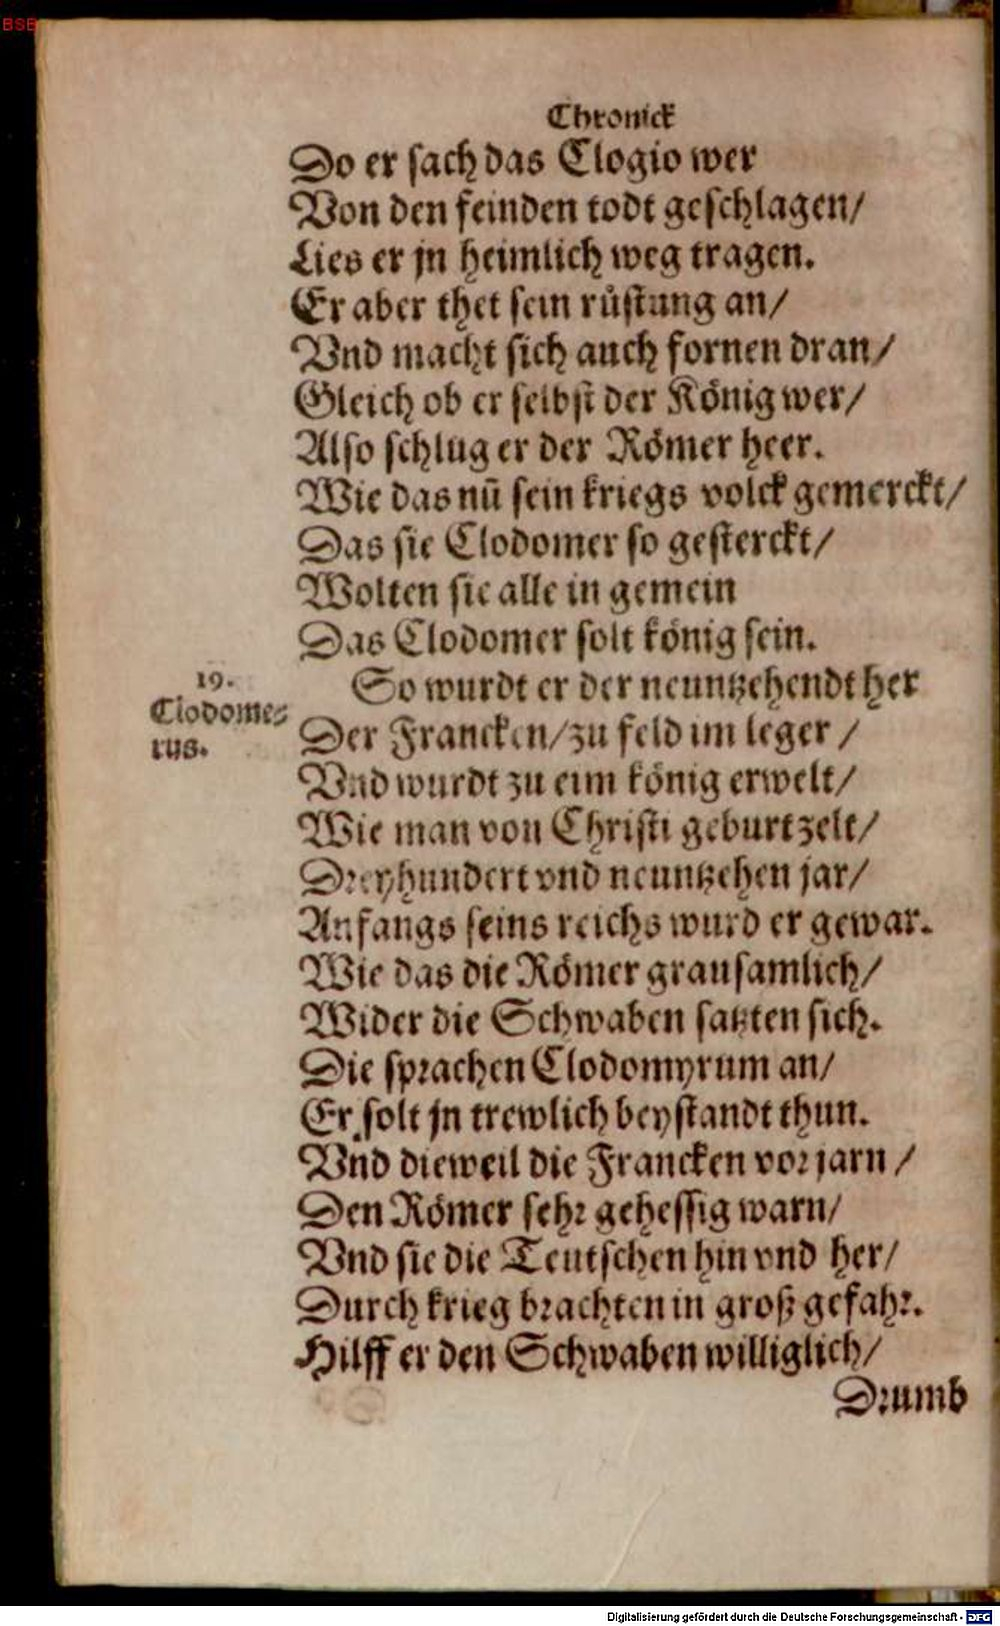 BSB
Chronick
Do er sach das Clogio wer
Von den feinden todt geschlagen/
Lies er jn heimlich weg tragen.
Er aber thet sein rüstung an/
Vnd macht sich auch fornen dran/
Gleich ob er selbst der König wer/
Also schlug er der Römer heer.
Wie das nū sein kriegs volck gemerckt/
Das sie Clodomer so gesterckt/
Wolten sie alle in gemein
Das Clodomer solt könig sein.
19.
Clodome=
rus.
So wurdt er der neuntzehendt her
Der Francken/zu feld im leger /
Vnd wurdt zu eim könig erwelt/
Wie man von Christi geburt zelt/
Dreyhundert vnd neuntzehen jar/
Anfangs seins reichs wurd er gewar.
Wie das die Römer grausamlich/
Wider die Schwaben satzten sich.
Die sprachen Clodomyrum an/
Er solt jn trewlich beystandt thun.
Vnd dieweil die Francken vor jarn /
Den Römer sehr gehessig warn/
Vnd sie die Teutschen hin vnd her/
Durch krieg brachten in groß gefahr.
Hilff er den Schwaben williglich/
Drumb
Digitalisierung gefördert durch die Deutsche Forschungsgemeinschaft - DFG